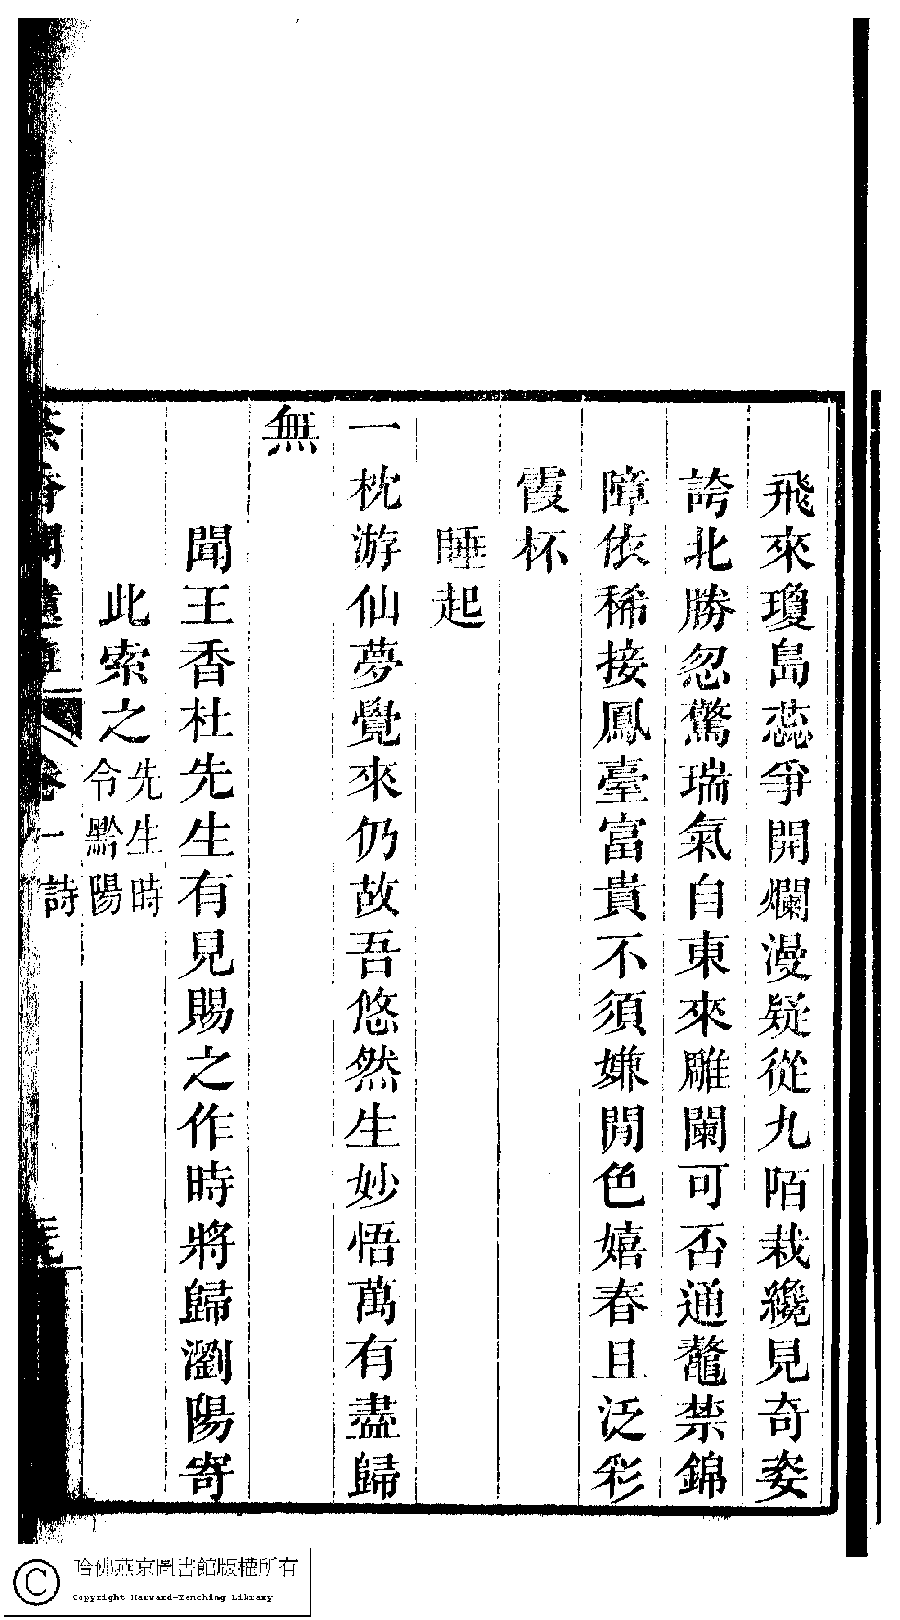 飛來瓊島蕊爭開爛漫疑從九陌栽纔見奇姿
誇北勝忽驚瑞氣自東來雕闌可否通鼇禁錦
障依稀接鳳臺富貴不須嫌閒色嬉春且泛彩
霞杯
睡起
一枕游仙夢覺來仍故吾悠然生妙悟萬有盡歸
無
聞王香杜先生有見賜之作時將歸瀏陽寄
此索之先生時
令黔陽
卷一
詩
哈佛燕京圖書館版權所有
Copyright Harvard-Yenching Library